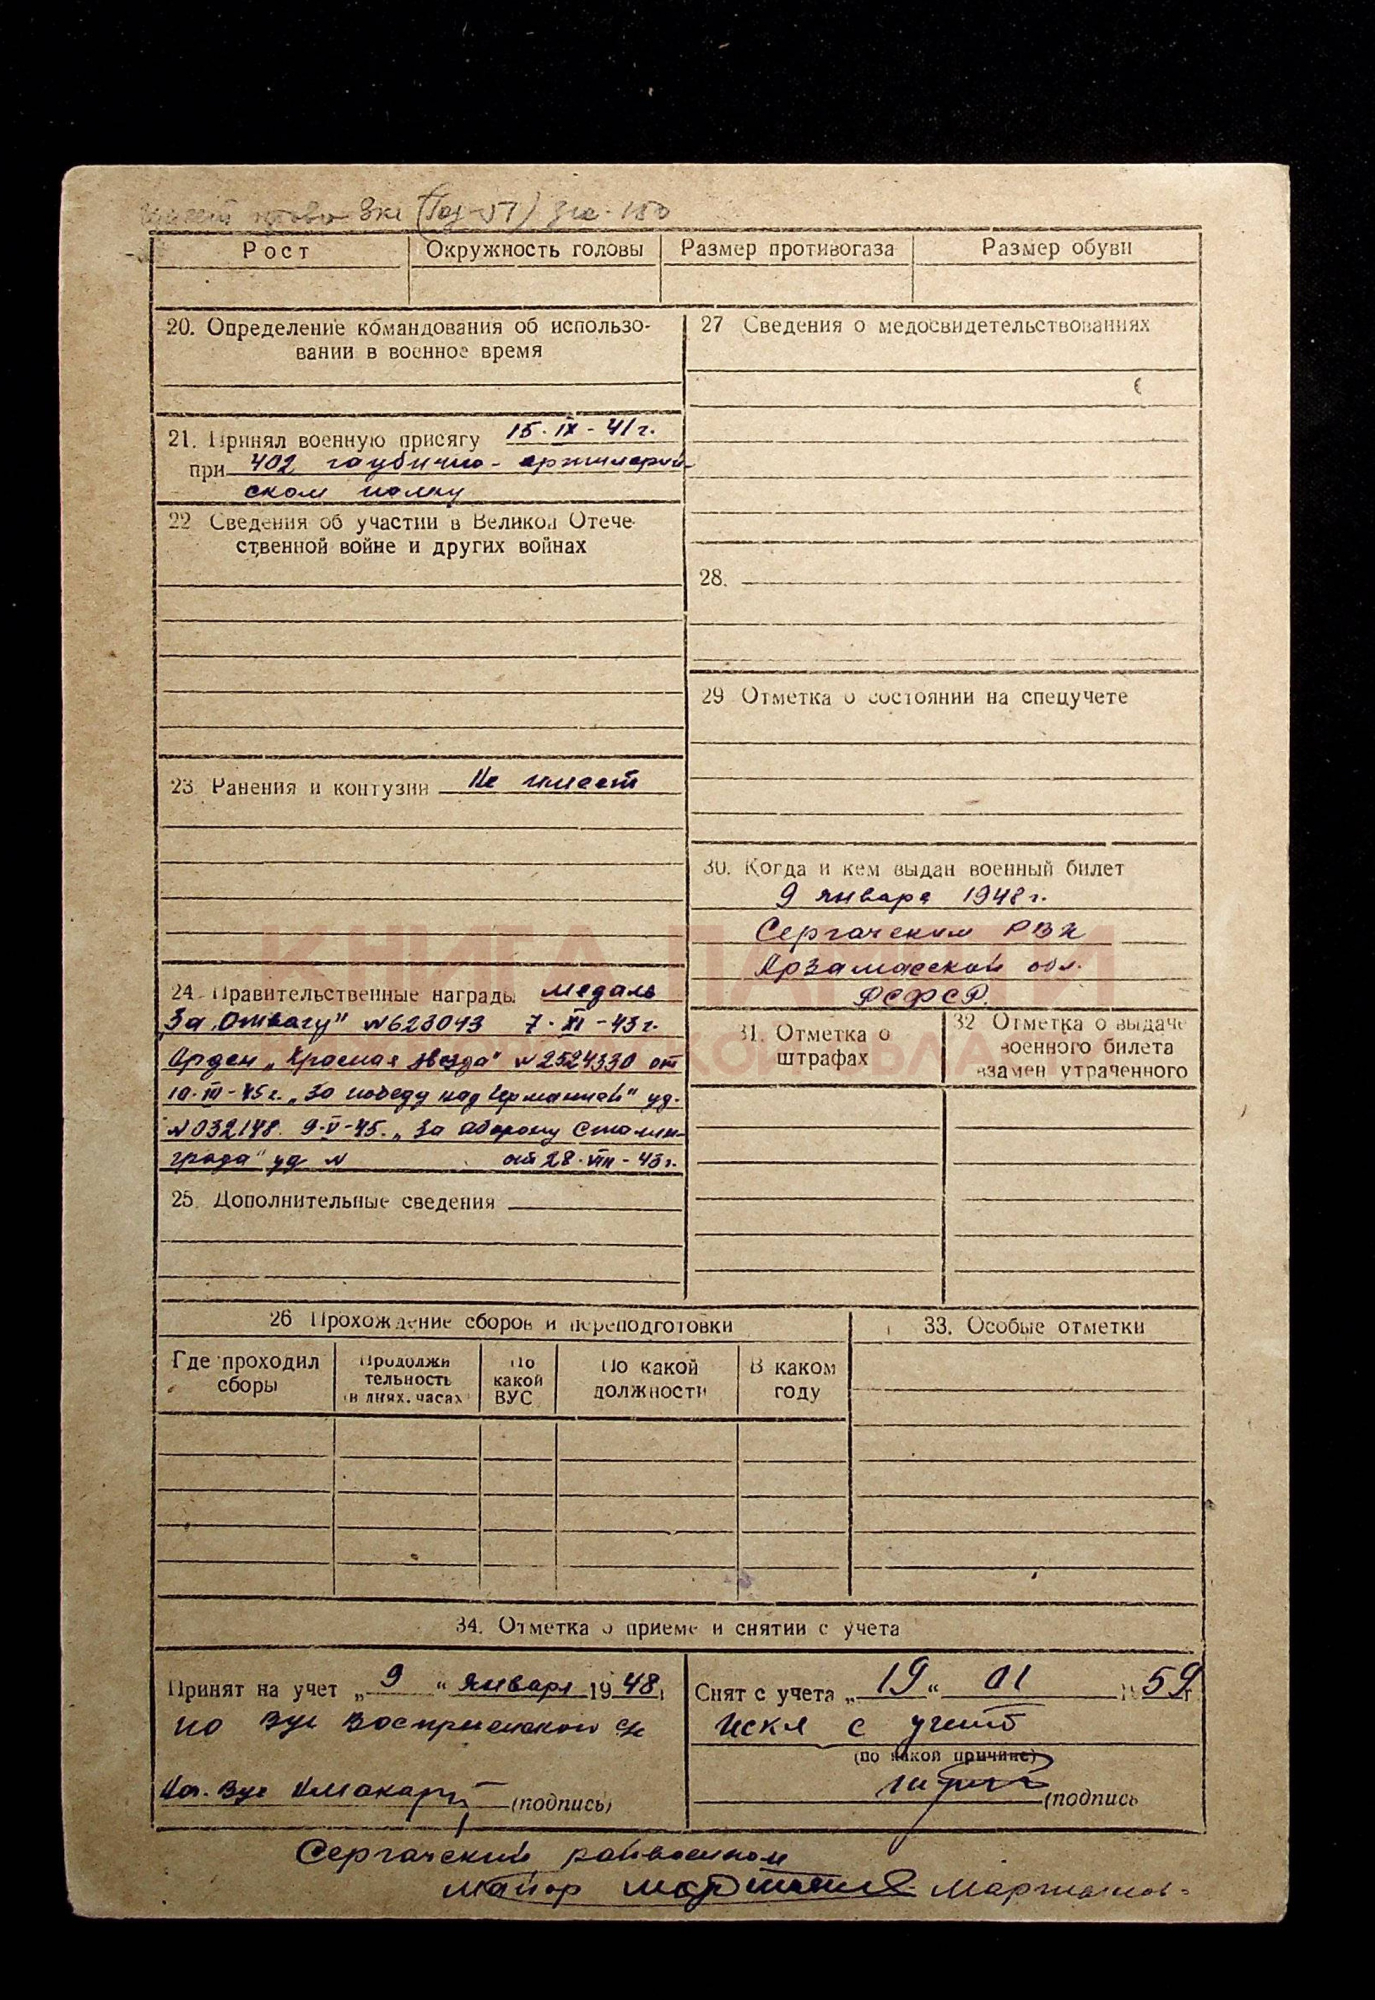 имеет право Зкг
Рост
Окружность головы
Размер противогаза
Размер обуви
20. Определение командования об использо-
вании в военное время
21. Принял военную присягу 15·IX-41г.
при 402 гаубично-артилерий-
ском полку
22 Сведения об участии в Великой Отече-
ственной войне и других войнах
23. Ранения и контузии Не имеет
24. Правительственные награды медаль
За „Отвагу" №623043 7·XI-43г.
Орден „Красная звезда" №2524330 от
10·III-45г. „За победу над Германией" уд.
№032148. 9·V-45. „За оборону Сталин-
града" уд № от 28·VIII-43г.
25. Дополнительные сведения
27 Сведения о медосвидетельствованиях
28.
29 Отметка о состоянии на спецучете
30. Когда и кем выдан военный билет
9 января 1948г.
Сергачским РВК
Арзамасской обл.
РСФСР.
31. Отметка о
штрафах
32 Отметка о выдаче
военного билета
взамен утраченного
КНИГА ПАМЯТИ
26 Прохождение сборов и переподготовки
Где проходил
сборы
Продолжи
тельность
(в днях, часах)
По
какой
ВУС
По какой
должности
В каком
году
33. Особые отметки
34. Отметка о приеме и снятии с учета
Принят на учет „9" января 1948г
по Вус Воскресенского с/с
(подпись)
Снят с учета „19" 01 1959г.
с учета
(по какой причине)
(подпись
Сергачский райвоенком
Майор